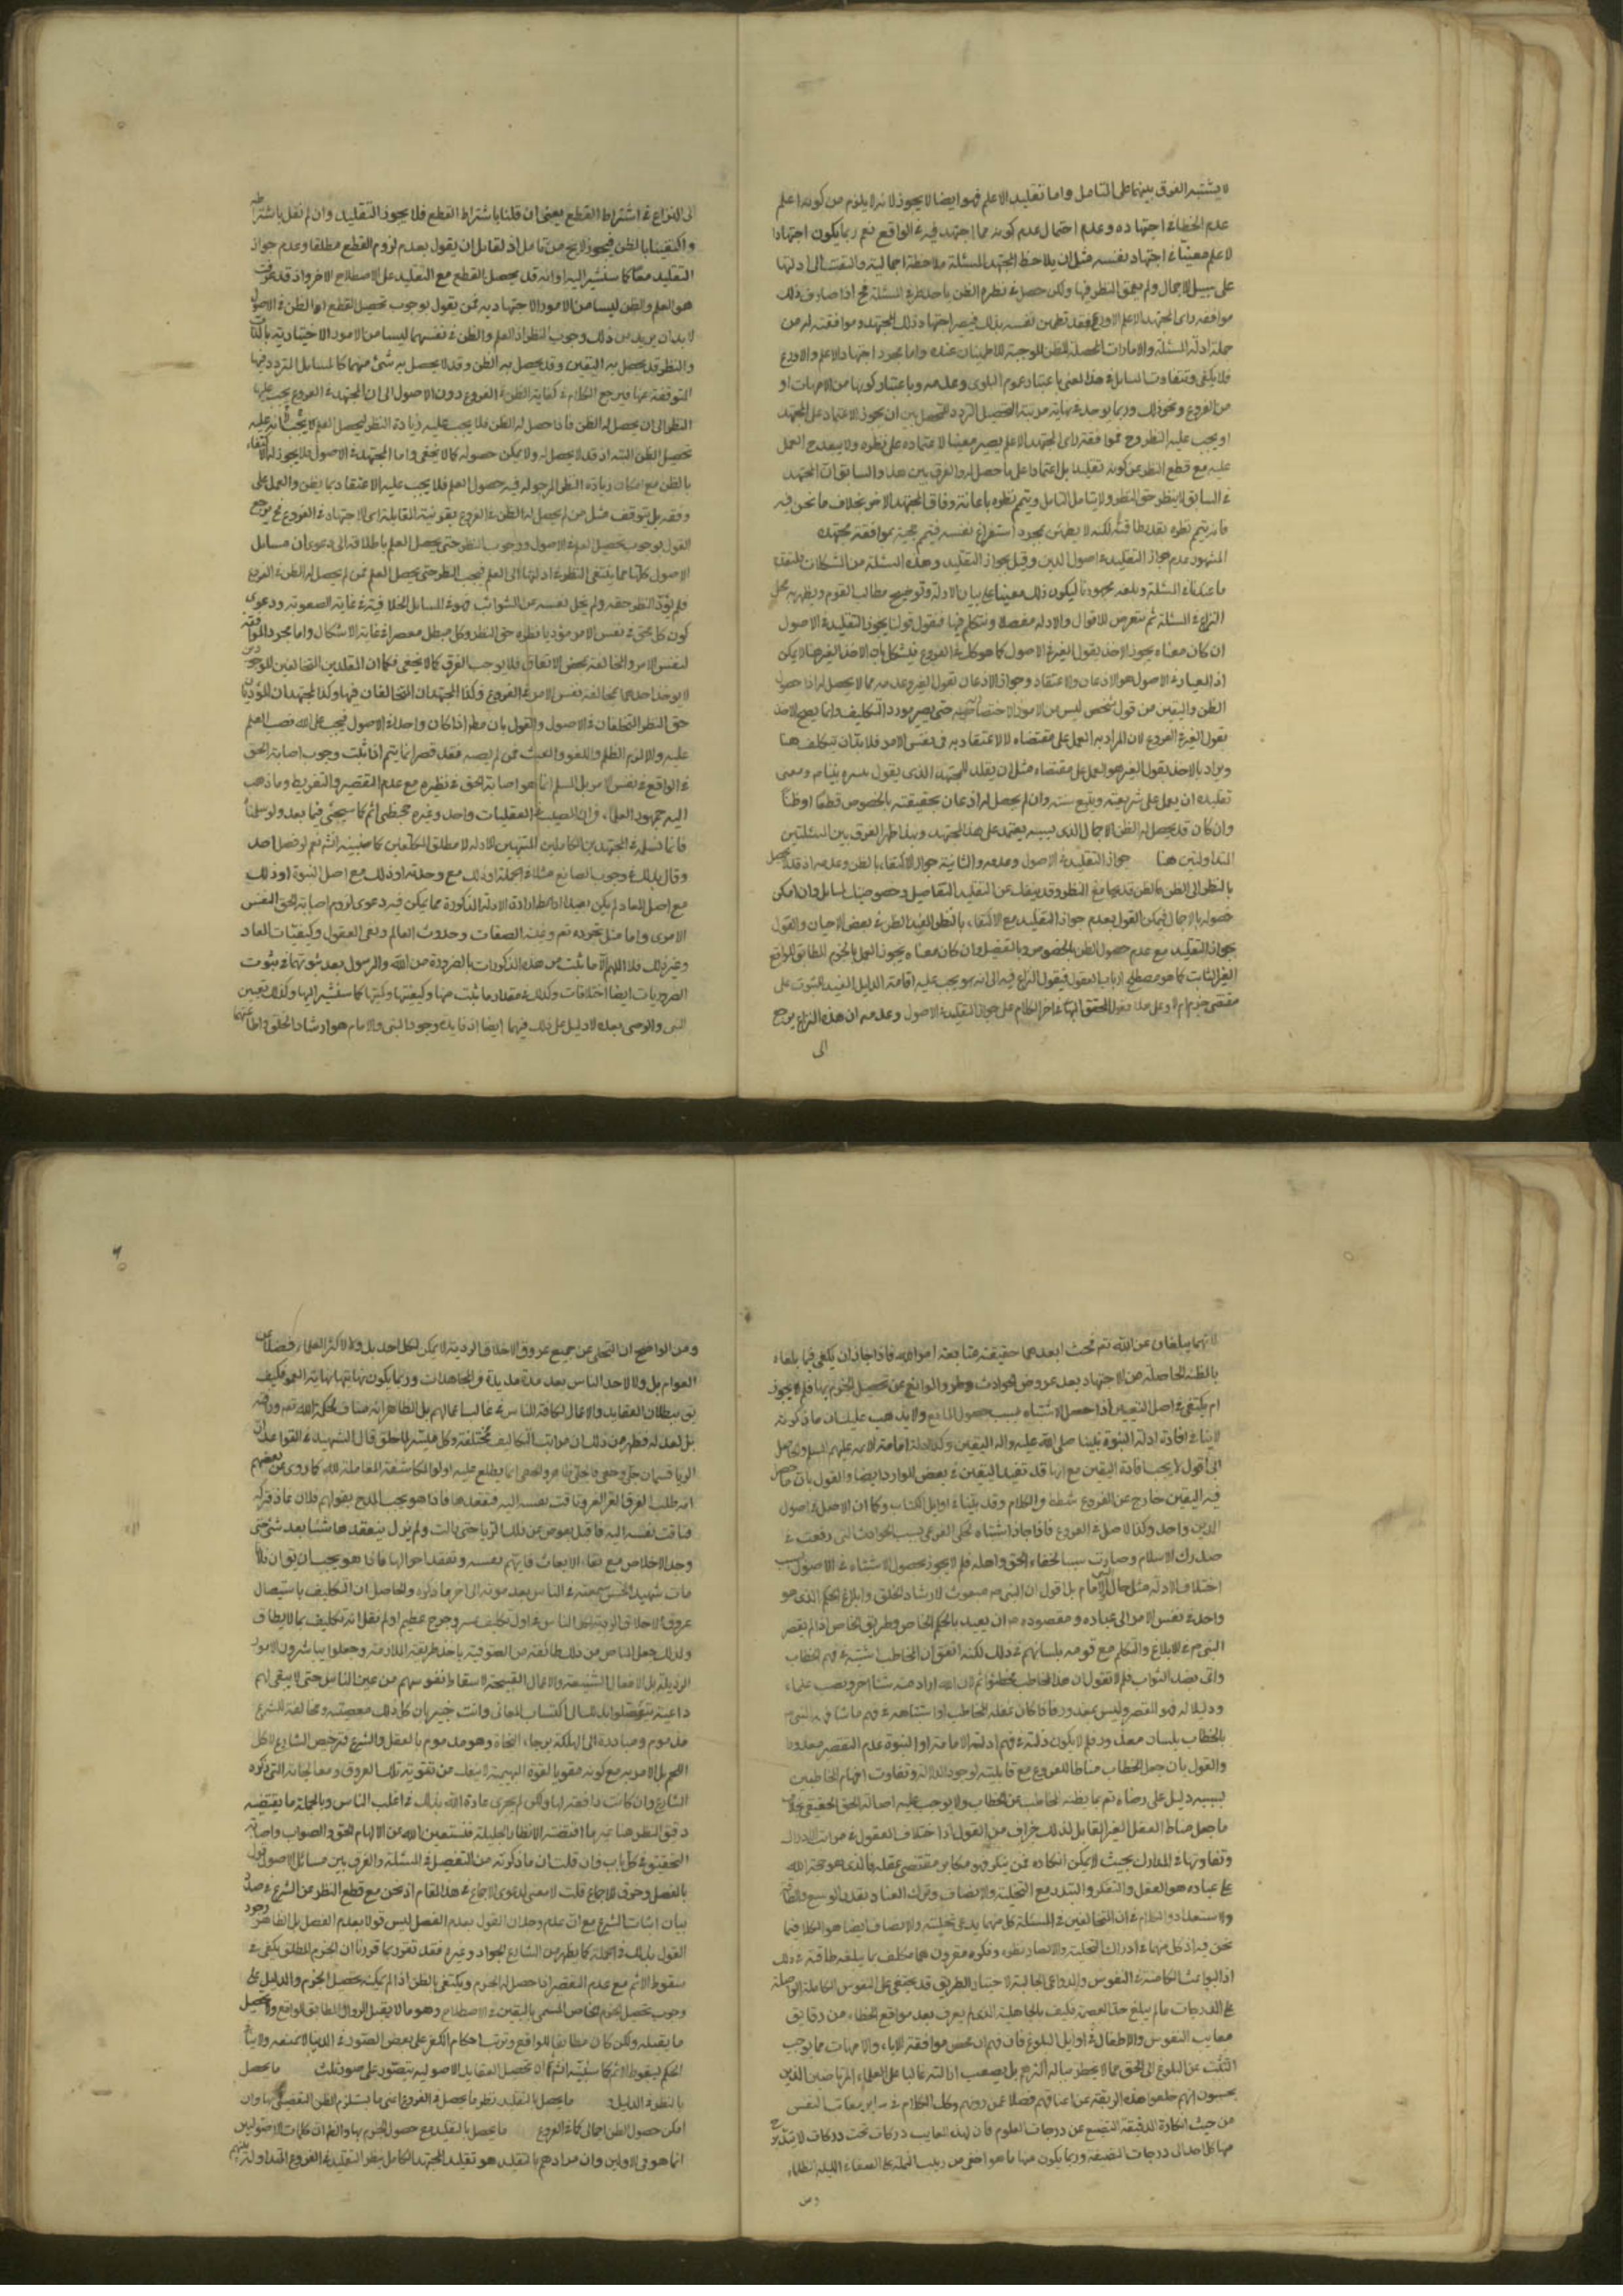 لا يشتبه الفرق بينهما على التامل واما تقليد الاعلم فهو ايضا لا يجوز لانه لا يلزم من كونه اعلم
عدم الخطاء في اجتهاده وعدم احتمال عدم كونه مما اجتهد فيه في الواقع نعم ربما يكون اجتهاد
الاعلم معينا في اجتهاد نفسه مثل ان يلاحظ المجتهد المسئلة ملاحظة اجمالية والتفت الى ادلتها
على سبيل الاجمال ولم يعمق النظر فيها ولكن حصل في نظره الظن باحد طرفي المسئلة فح اذا صادف ذلك
موافقة راى المجتهد الاعلم الاورع فقد تطمئن نفسه بذلك فيصير اجتهاد ذلك المجتهد وموافقته له من
جملة ادلة المسئلة والامارات المحصلة للظن الموجبة للاطمينان عنده واما مجرد اجتهاد الاعلم والاورع
فلا يكفى وتتفاوت المسايل في هذا المعنى باعتبار عموم البلوى وعدمه وباعتبار كونها من الامهات او
من الفروع ونحو ذلك وربما يوجد في نهاية مرتبة التحصيل التردد للمحصل بين ان يجوز له الاعتماد على المجتهد
او يجب عليه النظر وح فموافقة راى المجتهد الاعلم يصير معينا لاعتماده على نظره ولا يبعد ح العمل
عليه مع قطع النظر عن كونه تقليدا بل اعتمادا على ما حصل له والفرق بين هذا والسابق ان المجتهد
في السابق لا ينظر حق النظر ولا يتامل التامل ويتم نظره باعانة وفاق المجتهد الاخر بخلاف ما نحن فيه
فانه يتم نظره بقدر طاقته لكنه لا يطمئن بمجرد استفراغ نفسه فيتم بموافقة مجتهده
المشهور عدم جواز التقليد في اصول الدين وقيل بجواز التقليد وهذه المسئلة من المشكلات فلنقدم
ما عندنا في المسئلة وبلغه مجهودنا ليكون ذلك معينا على بيان الادلة وتوضيح مطالب القوم ويظهر به محل
النزاع في المسئلة ثم نتعرض للاقوال والادلة مفصلا ونتكلم فيها فنقول قولنا يجوز التقليد في الاصول
ان كان معناه يجوز الاخذ بقول الغير في الاصول كما هو كك في الفروع فيشكل بان الاخذ بالغير هنا لا يمكن
اذ العبارة في الاصول هو الاذعان والاعتقاد وجواز الاذعان بقول الغير وعدمه مما لا يحصل له اذ حصول
الظن واليقين من قول شخص ليس من الامور الاختصاصية حتى يصير مورد التكليف وانما يصح الاخذ
بقول الغير في الفروع لان المراد به العمل على مقتضاه لا الاعتقاد به في نفس الامر فلا بد ان يتكلف هنا
ويراد بالاخذ بقول الغير هو العمل على مقتضاه مثل ان يقلد المجتهد الذى يقول بسره بنيام ومعنى
تقليده ان يعمل على شريعته ويتبع سنته وان لم يحصل له اذعان بحقيقته بالخصوص قطعا او ظنا
وان كان قد يحصل له الظن الاجمالى الذى بسببه يعتمد على هذا المجتهد وبهذا ظهر الفرق بين المسئلتين
المتداولتين هنا جواز التقليد في الاصول وعدمه والثانية جواز الاكتفاء بالظن وعدمه اذ قد يحصل
بالنظر الى الظن فالظن قد يجامع النظر وقد ينفك عن التقليد التفاصيل وخصوصيات المسايل وان امكن
حصوله بالاجمال فيمكن القول بعدم جواز التقليد مع الاكتفاء بالنظر المفيد للظن في بعض الاحيان والقول
بجواز التقليد مع عدم حصول الظن بالخصوص وبالتفصيل وان كان معناه يجوز العمل بالجزم المطابق للواقع
الغير الثابت كما هو مصطلح ارباب المعقول فيقول النزاع فيه الى انه هو يجب عليه اقامة الدليل المفيد للثبوت على
مقتضى جزمه ام لا وعلى هذا فقول المحقق البهائى اخر الكلام على جواز التقليد في الاصول وعدمه ان هذا النزاع يرجع
الى
الى النزاع في اشتراط القطع يعنى ان قلنا باشتراط القطع فلا يجوز التقليد وان لم نقل باشتراطه
واكتفينا بالظن فيجوز لا يخ من تامل اذ لقائل ان يقول بعدم لزوم القطع مطلقا وعدم جواز
التقليد معا كما سنشير اليه وانه قد يحصل القطع مع التقليد على الاصطلاح الاخر واذ قد عرفت
هو العلم والظن ليسا من الامور الاجتهادية فمن يقول بوجوب تحصيل القطع او الظن في الاصول
لا بد ان يريد من ذلك وجوب النظر اذ العلم والظن في نفسهما ليسا من الامور الاختيارية بالذات
والنظر قد يحصل به اليقين وقد يحصل به الظن وقد لا يحصل به شئ منهما كالمسايل المتردد فيها
المتوقفة عنها فيرجع الكلام في كفاية الظن في الفروع دون الاصول الى ان المجتهد في الفروع يجب عليه
النظر الى ان يحصل له الظن فاذا حصل له الظن فلا يجب عليه زيادة النظر ليحصل العلم لا يجب انه عليه
تحصيل الظن البتة اذ قد لا يحصل له ولا يمكن حصوله كما لا يخفى واما المجتهد في الاصول فلا يجوز له الاكتفاء
بالظن مع امكان زيادة النظر المرجو له فيه حصول العلم فلا يجب عليه الاعتقاد بما يظن والعمل على
وفقه بل يتوقف مثل من لم يحصل له الظن في الفروع بقرينة المقابلة اى الاجتهاد في الفروع فح يرجع
القول بوجوب تحصيل العلم في الاصول ووجوب النظر حتى يحصل العلم باطلاقه الى دعوى ان مسايل
الاصول كلها مما يفضى النظر في ادلتها الى العلم فيجب النظر حتى يحصل العلم فمن لم يحصل له الظن في الفروع
فلم يؤد النظر حقه ولم يخل نفسه عن الشوائب فهو في المسايل الخلافية في غاية الصعوبة ودعوى
كون كل محق في نفس الامر مؤديا نظره حق النظر وكل مبطل مقصرا في غاية الاشكال واما مجرد الموافقة
لنفس الامر والمخالفة بمحض الاتفاق فلا يوجب الفرق كما لا يخفى فكما ان المقلدين المتخالفين
لا يوخذ احدهما لمخالفة نفس الامر في الفروع وكذا المجتهدان المتخالفان فيها وكذا المجتهدان المؤديان
حق النظر المختلفان في الاصول والقول بان مطم اذا كان واحدا في الاصول فيجب على الله نصب العلم
عليه والا لزم الظلم واللغو والعبث فمن لم يصبه فقد قصر انما يتم اذا ثبت وجوب اصابة الحق
في الواقع في نفس الامر بل المسلم انما هو اصابة الحق في نظره مع عدم التقصير والتفريط وما ذهب
اليه جمهور العلماء ان المصيب في العقليات واحد وغيره مخطئ آثم كما سيجئ فيما بعد ولو سلمنا
فانما نسلمه في المجتهدين الكاملين المنتهين للادلة لا مطلق المكلفين كما سنبينه انشاء الله نعم لو فصل احد
وقال بذلك في وجوب الصانع مثلا في الجملة او ذلك مع وحدته او ذلك مع اصل النبوة او ذلك
مع اصل المعاد لم يكن بعيدا ارادة الادلة المذكورة مما يمكن فيه دعوى لزوم اصابة الحق النفس
الامرى واما مثل تجرده تعم وعينية الصفات وحدوث العالم ونفى العقول وكيفيات المعاد
وغير ذلك فلا اللهم الا ما ثبت من هذه المذكورات بالضرورة من الله والرسول بعد ثبوتهما في ثبوت
الضروريات ايضا اختلافات وكذلك في مقدار ما ثبت منها وكيفيتها وكميتها كما سنشير اليها وكذلك تعيين
النبى والوصى بعده لا دليل على ذلك فيهما ايضا اذ فايدة وجود النبى والامام هو ارشاد الخلق واطاعتهما
لانهما يبلغان عن الله تعم فحيث ابعدهما حقيقة متابعة امر الله فاذا جاز ان يكتفى فيما بلغاه
بالظنة الحاصلة من الاجتهاد بعد عروض الحوادث وطرو الموانع عن تحصيل الجزم بها فلم لا يجوز
ان يكتفى في اصل التعيين اذا حصل الاشتباه بسبب حصول المانع ولا يذهب عليك ان ما ذكرته
لا ينافى افادة ادلة النبوة نبينا صلى الله عليه واله اليقين وكذا ادلة امامة الائمة عليهم السلم والحاصل
انى اقول لا يجب افادة اليقين مع انها قد تفيد اليقين في بعض الموارد ايضا والقول بان ما حصل
فيه اليقين خارج عن الفروع شطط من الكلام وقد بيناه في اوايل الكتاب وكما ان الاصل في اصول
الدين واحد وكذا الاصل في الفروع فاذا جاز اشتباه الحكم الفرعى بسبب الحوادث التى وقعت في
صدر الاسلام وصارت سببا لخفاء الحق واهله فلم لا يجوز حصول الاشتباه في الاصول بسبب
اختلاف الادلة مثل حال الامام بل اقول ان النبى ص مبعوث لارشاد الخلق وابلاغ الحكم الذى هو
واحد في نفس الامر الى عباده ومقصوده ص ان يعبد بالحكم الخاص وطريق الخاص اذا لم يقصر
النبى ص في الابلاغ والتكلم مع قومه بلسانهم في ذلك لكنه اتفق ان المخاطب اشتبه في فهم الخطاب
واتى بضد الثواب فلم لا تقول ان هذا المخاطب مخطئ آثم لان الله اراد منه شيئا اخر ونصب علما
ودليلا له فهو المقصر وليس بمعذور فاذا كان غفلة المخاطب او اشتباهه في فهم ما شافهه النبى ص
بالخطاب بلسان معذور فلم لا يكون ذلته في فهم ادلة الامامة او النبوة عدم التقصير معذورا
والقول بان جعل الخطاب مناطا للفروع مع قابليته لوجود الدلالة وتفاوت افهام المخاطبين
بسببه دليل على رضاه تعم بما يظنه المخاطب عن الخطاب ولا يوجب عليه اصابة الحق الحقيقى بخلاف
ما جعل مناط العقل الغير القابل لذلك جزاف من القول اذ اختلاف العقول في مراتب الادراك
وتفاوتها في المدارك بحيث لا يمكن انكاره فمن ينكر فهو مكابر مقتضى عقله فالذى هو حجة الله
على عباده هو العقل والتفكر والتدبر مع التخلية والانصاف وترك العناد بقدر الوسع والطاقة
ولاستعداد والكلام في ان المتخالفين في المسئلة كل منهما يدعى تخليته والانصاف ايضا هو الكلام فيما
نحن فيه اذ كل منهما في ادراك التخلية والانصاف نظره وفكره مقرون هما مكلف بما يبلغه طاقته في ذلك
اذ البواعث الكامنة في النفوس والدواعى الجالبة لاختيار الطريق قد يختفى على النفوس الكاملة الواصلة
على الدرجات ما لم يبلغ حد العصمة فكيف بالجاهلية الذى لم يعرف بعد مواقع الخطاء من دقايق
معايب النفوس والاطفال في اوايل البلوغ فان فهم ان محض موافقة الاباء والامهات مما يوجب
التلفت عن البلوغ الى الحق مما لا يخطر ببال اكثرهم بل يصعب ازالته غالبا على العلماء المرتاضين الذين
يحسبون انهم خلعوا هذه الربقة عن اعناقهم فضلا عن دونهم وكذا الكلام في ساير معايب النفس
من حيث الكارة الدقيقة التضع عن درجات العلوم فان لهذه المعايب دركات تحت دركات لا يتدرج
منها كل احد الى درجات التصفية وربما يكون منها ما هو اخفى من دبيب النملة على الصفا في الليلة الظلماء
ومن
ومن الواضح ان التخلى عن جميع عروق الاخلاق الردية لا يمكن لكل احد بل ولا لاكثر العلماء فضلا عن
العوام بل ولا لاحد الناس بعد مدة مديدة في المجاهدات وربما يكون نهايتها نهاية العمر فكيف
يق ببطلان العقايد والاعمال لكافة الناس في غالب اعمالهم بل الظاهر انه مناف لحكمة الله تعم ورافته
بل لعدله فظهر من ذلك ان مراتب التكاليف مختلفة وكل ميسر لما خلق قال الشهيد في القواعد ان
الريا قسمان جلى وخفى فالجلى ظاهر والخفى انما يطلع عليه اولوا المكاشفة والمعاملة لله كما روى عن بعضهم
انه طلب الغزو فتاقت نفسه اليه فتفقدها فاذا هو يحب المدح بقولهم فلان غاز فتركه
فتاقت نفسه اليه فاقبل يعرض عن ذلك الريا حتى زالت ولم يزل يتفقدها شيئا بعد شئ حتى
وجد الاخلاص مع بقاء الانبعاث فاتهم نفسه وتفقد احوالها فاذا هو يحب ان يق ان فلانا
مات شهيدا لتحسن سمعته في الناس بعد موته الى اخر ما ذكره والحاصل ان التكليف باستيصال
عروق الاخلاق الردية لكل الناس في اول تكليف عسر وحرج عظيم او لم نقل انه تكليف بما لا يطاق
ولذلك جعل المناص من ذلك طائفة من الصوفية باخذ طريقة الملامتية وجعلوا يباشرون الامور
الرذيلة بل الافعال الشنيعة والاعمال القبيحة لاسقاط نفوسهم من عين الناس حتى لا يبقى لهم
داعية فتوصلوا بذلك الى اكتساب المعانى وانت خبير بان كل ذلك معصية ومخالفة للشرع
مذموم ومبادرة الى الهلكة برجاء النجاة وهو مذموم بالعقل والشرع فترخيص الشارع لاكل
اللحم بل الامر به مع كونه مقويا لقوة البهيمية لا ينفك عن تقوية تلك العروق ومعالجاته التى ذكره
الشارع وان كانت دافعة لها ولكن لم يجرى عادة الله بذلك في اغلب الناس وبالجملة ما يقتضيه
دقيق النظر هنا غير ما اقتضته الانظار الجليلة فنستعين الله عن الالهام الحق والصواب واصابة
التحقيق في كل باب فان قلت ان ما ذكرته من التفصيل في المسئلة والفرق بين مسائل الاصول قول
بالفصل وخرق للاجماع قلت لا معنى لدعوى الاجماع في هذا المقام اذ نحن مع قطع النظر عن الشرع في صدد
بيان اثبات الشرع مع ان عدم وجدان القول بعدم الفصل ليس قولا بعدم الفصل بل الظاهر وجود
القول بذلك في الجملة كما يظهر من الشارح الجواد وغيره فقد تقرر بما قررنا ان الجزم المطلق يكفى في
سقوط الاثم مع عدم التقصير اذا حصل له الجزم ويكتفى بالظن اذا لم يمكنه تحصيل الجزم والدليل على
وجوب تحصيل الجزم الخاص المسمى باليقين في الاصطلاح وهو ما لا يقبل الزوال المطابق للواقع ولا يحصل
ما يقبله ولكن كان مطابقا للواقع وترتب احكام الكفر على بعض الصور في الدنيا لا يمنعه ولاينافى
الحكم بسقوط الاثم كما سنبينه انشاء الله ان تحصيل العقايد الاصولية يتصور على صور ثلث ما يحصل
بالنظر في الدليل ما يحصل بالتقليد نظير ما يحصل في الفروع اعنى ما يستلزم الظن التفصيلى بها وان
امكن حصول الظن اجمالى كما في الفروع ما يحصل بالتقليد مع حصول الجزم بها والظ ان كلمات الاصوليين
انما هو في الاولين وان مرادهم بالتقليد هو تقليد المجتهد الكامل نظير التقليد في الفروع المتداولة بينهم